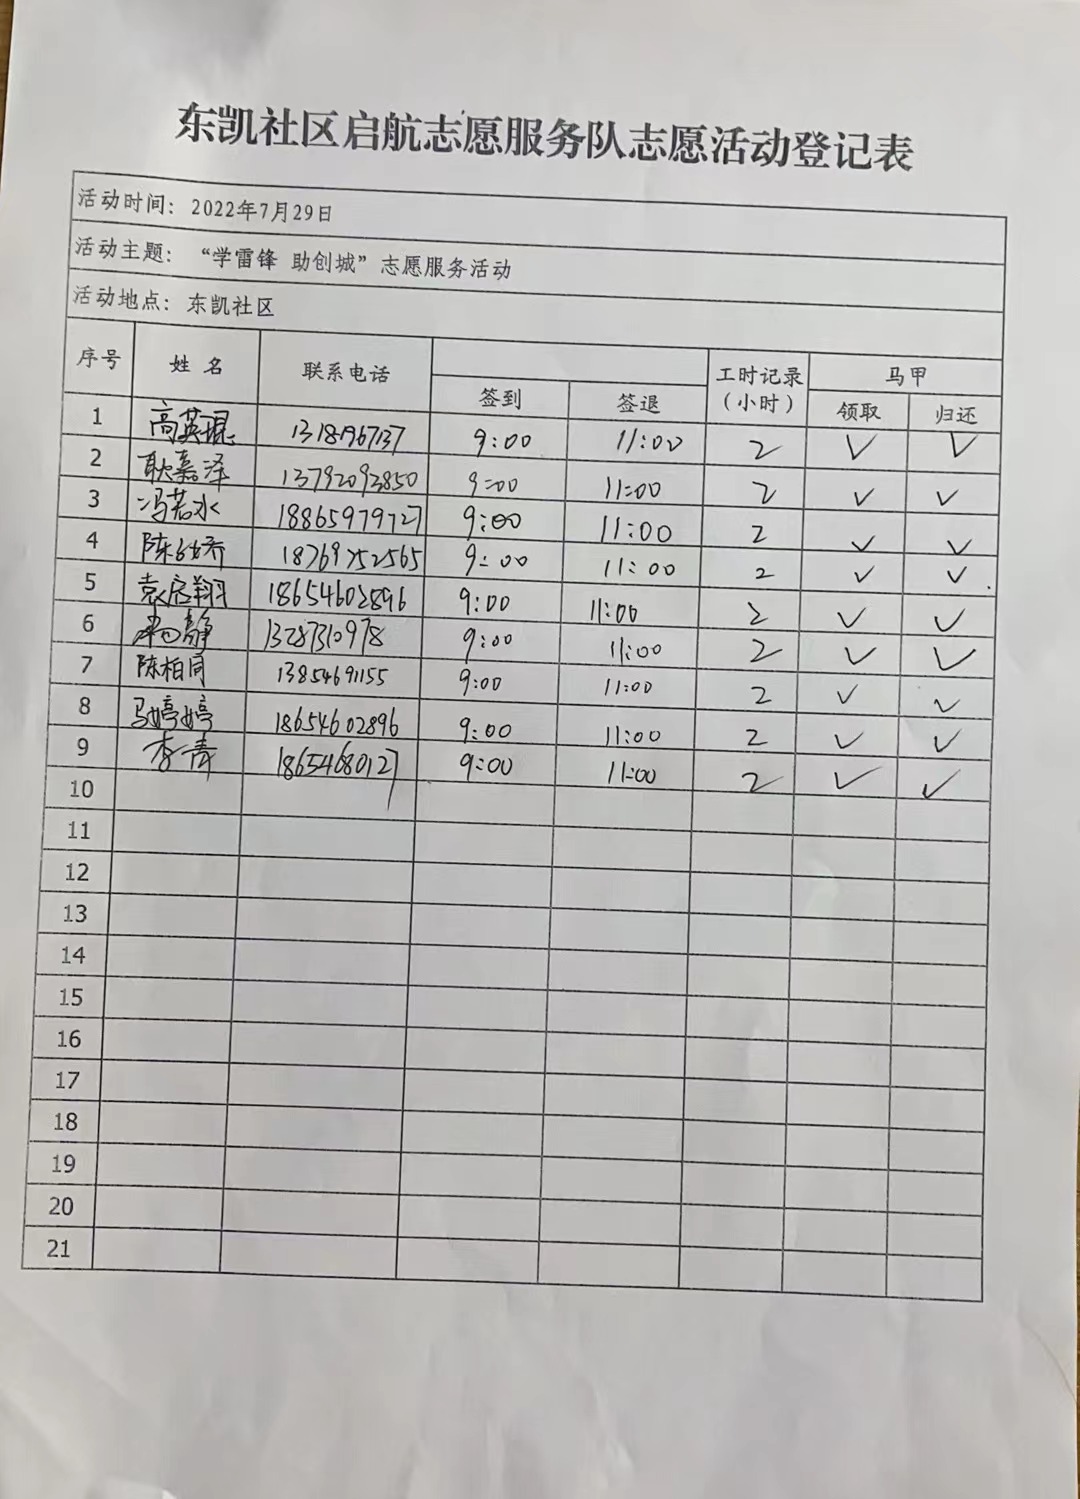 东凯社区启航志愿服务队志愿活动登记表
活动时间：2022年7月29日
活动主题：“学雷锋 助创城”志愿服务活动
活动地点：东凯社区
序号 姓 名 联系电话 签到 签退 工时记录（小时） 马甲 领取 归还
1 高英琨 13181967137 9:00 11:00 2 ✓ ✓
2 耿嘉泽 13792093850 9:00 11:00 2 ✓ ✓
3 冯若水 18865979727 9:00 11:00 2 ✓ ✓
4 陈 娇 18769752565 9:00 11:00 2 ✓ ✓
5 袁启翔 18654602896 9:00 11:00 2 ✓ ✓
6 静 13287310978 9:00 11:00 2 ✓ ✓
7 陈柏同 13854691155 9:00 11:00 2 ✓ ✓
8 马婷婷 18654602896 9:00 11:00 2 ✓ ✓
9 李青 18654680127 9:00 11:00 2 ✓ ✓
10
11
12
13
14
15
16
17
18
19
20
21